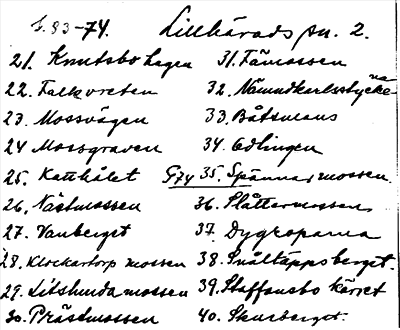 s. 93-74. Lillhärads sn. 2.
21. Knutsbo hagen
22. Falkvreten
23. Mossvägen
24 Mossgraven
25. Katthålet
26. Nästmossen
27. Vanberget
28. Klockartorp mossen
29. Litslunda mossen
30. Prästmossen
31. Fämossen
32. Nämndkarlsstycke na
33. Båtsmans
34. Odlingen
G74 35. Spännarmossen.
36. Slåttermossen
37. Dygroparna
38. Snåltäppsberget.
39. Staffansbo kärret
40. Skurberget.